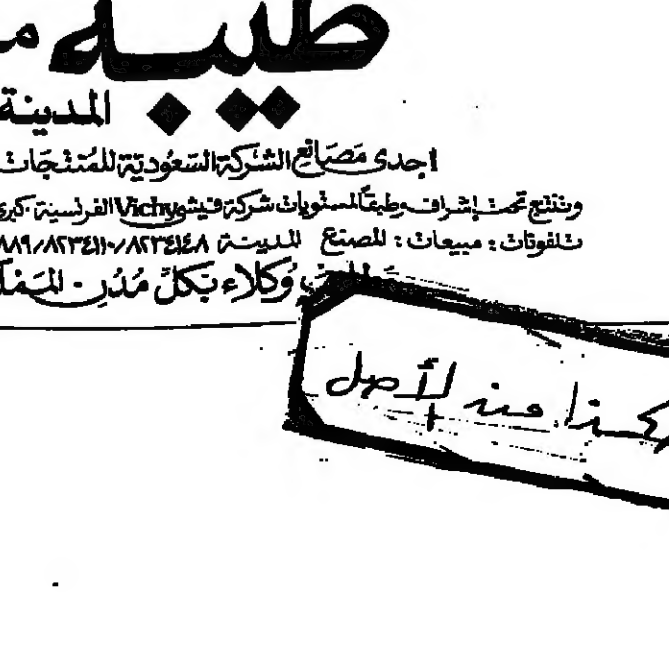 طيبة
المدينة
احدى مصانع الشركة السعودية للمنتجات
وتنتج تحت إشراف وطبقاً لمستويات شركة فيشي Vichy الفرنسية كبرى
تلفونات : مبيعات : المصنع المدينة ٨٢٣٤١٤٨
وكلاء بكل مدن
هكذا عند لأصل